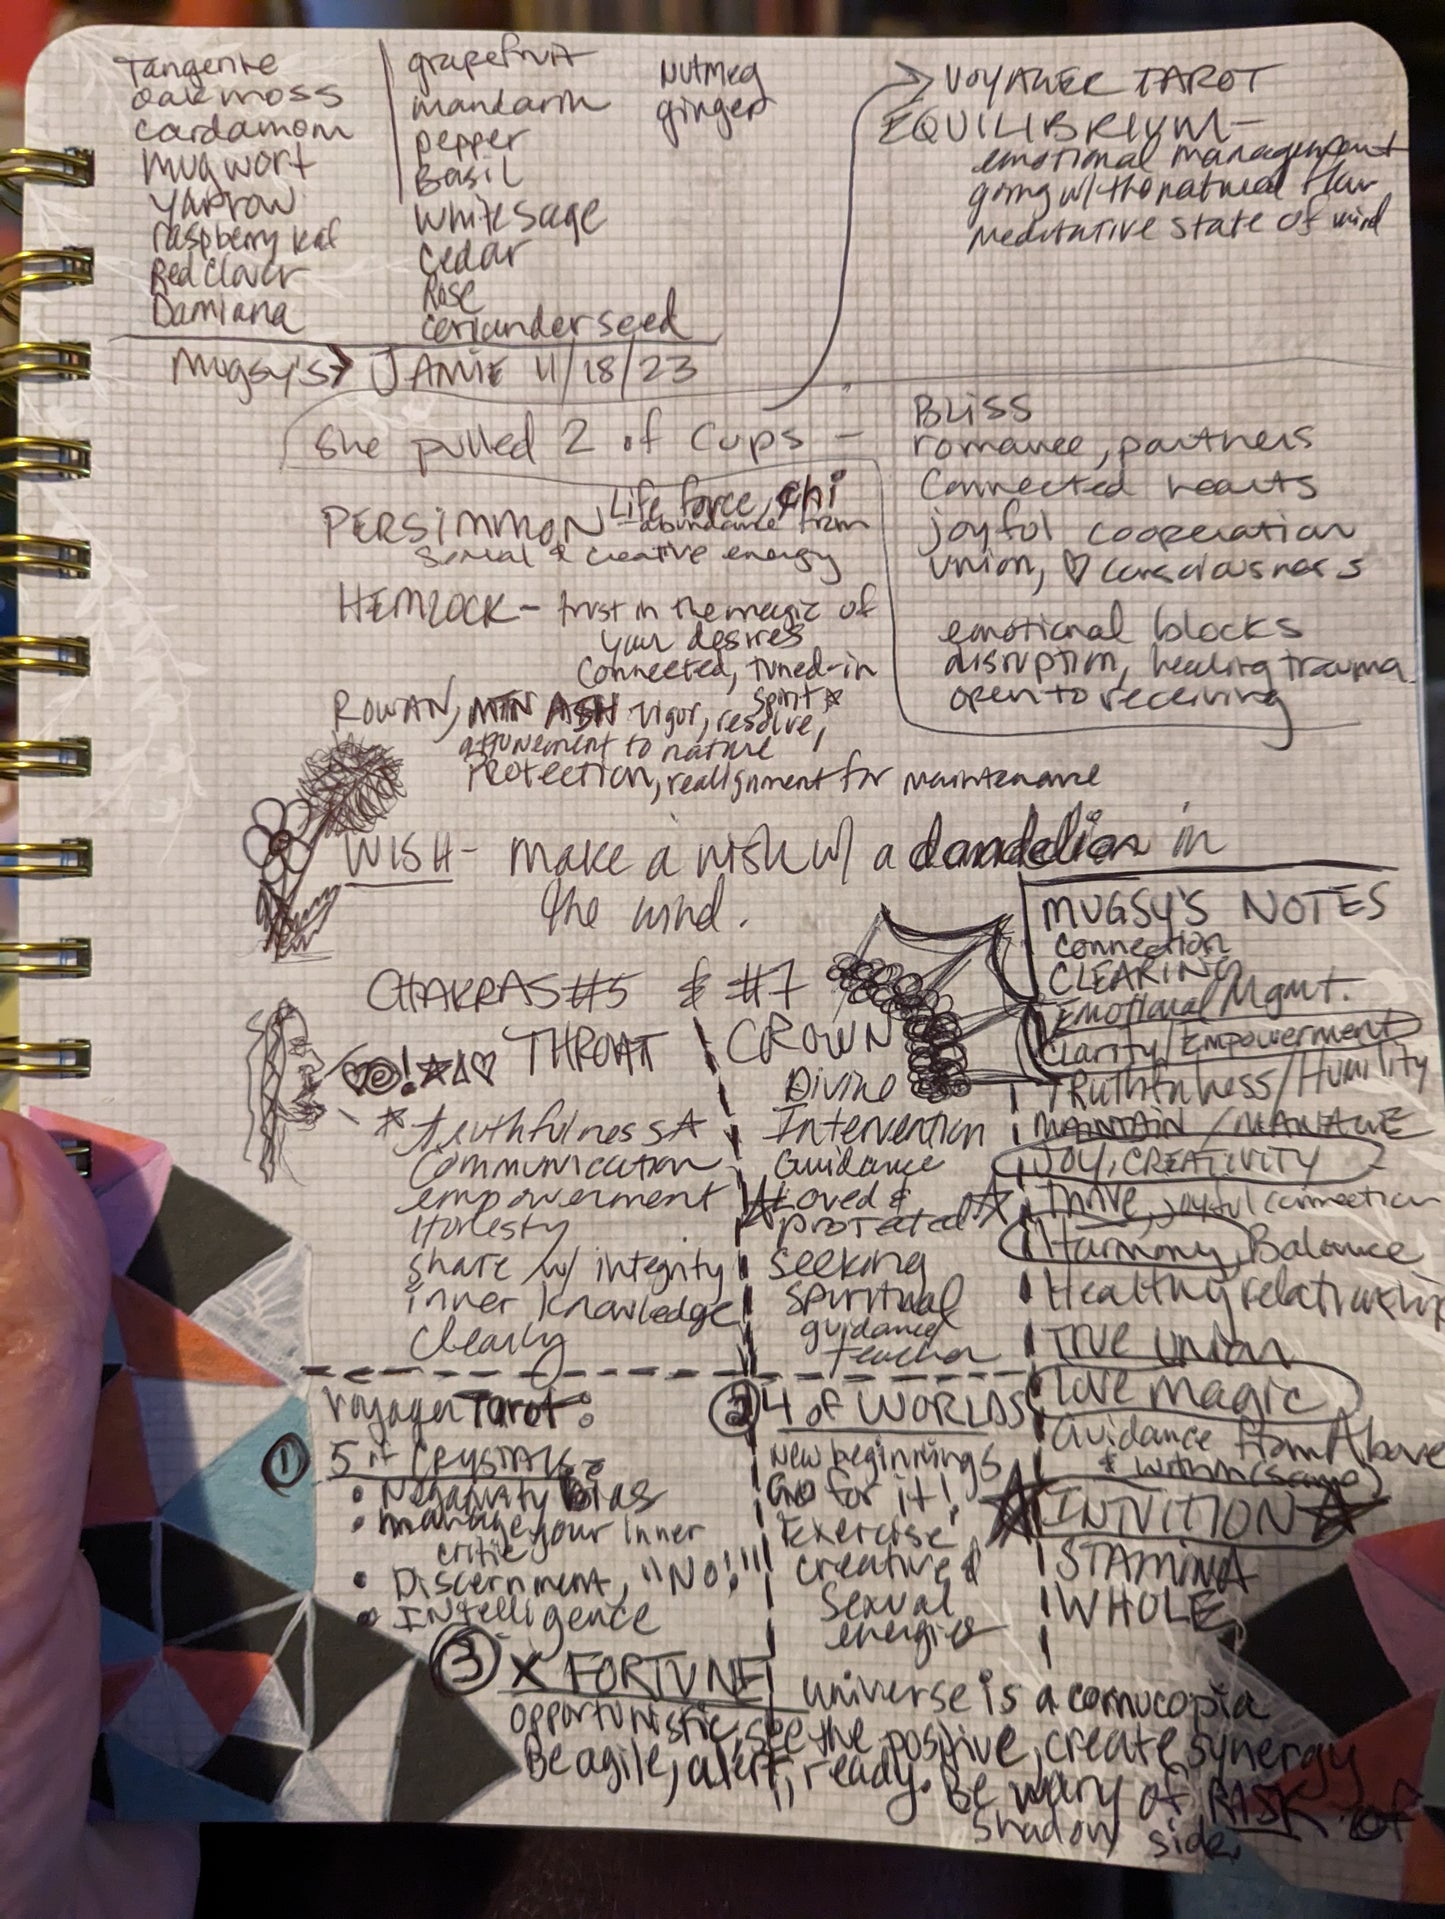 Tangerine
oakmoss
cardamom
mugwort
yarrow
raspberry leaf
Red Clover
Damiana
grapefruit
mandarin
pepper
Basil
white sage
cedar
Rose
coriander seed
Nutmeg
ginger
VOYAGER TAROT
EQUILIBRIUM -
emotional management
going w/ the natural flow
meditative state of mind
Mugsy's > JAMIE 11/18/23
she pulled 2 of cups -
BLISS
romance, partners
connected hearts
joyful cooperation
union, ♡ consciousness
emotional blocks
disruption, healing trauma
open to receiving
PERSIMMON Life force, chi
- abundance from
sexual & creative energy
HEMLOCK - trust in the magic of
your desires
connected, tuned-in
spirit ☆
ROWAN, MTN ASH vigor, resolve,
attunement to nature
PROTECTION, realignment for maintenance
WISH - make a wish w/ a dandelion in
the wind.
CHAKRAS #5 & #7
THROAT
♡@!☆Δ♡
☆ truthfulness ☆
communication
empowerment
Honesty
share w/ integrity
inner knowledge
clearly
CROWN
Divine
Intervention
Guidance
☆ Loved &
protected ☆
seeking
spiritual
guidance
teacher
MUGSY'S NOTES
connection
CLEARING
Emotional Mgmt.
Clarity/Empowerment
TRUTHfulness/Humility
MAINTAIN / MANAGE
JOY, CREATIVITY
Thrive, joyful connection
Harmony, Balance
Healthy relationship
TRUE union
Love magic
Guidance from Above
& within (same)
☆ INTUITION ☆
STAMINA
WHOLE
Voyager Tarot:
① 5 of CRYSTALS
• Negativity Bias
• manage your inner
critic
• Discernment, "No!"
• Intelligence
② 4 of WORLDS
New beginnings
Go for it!
Exercise
creative &
sexual
energies
③ X FORTUNE
universe is a cornucopia
opportunistic, see the positive, create synergy
Be agile, alert, ready. Be wary of RISK of
shadow side.